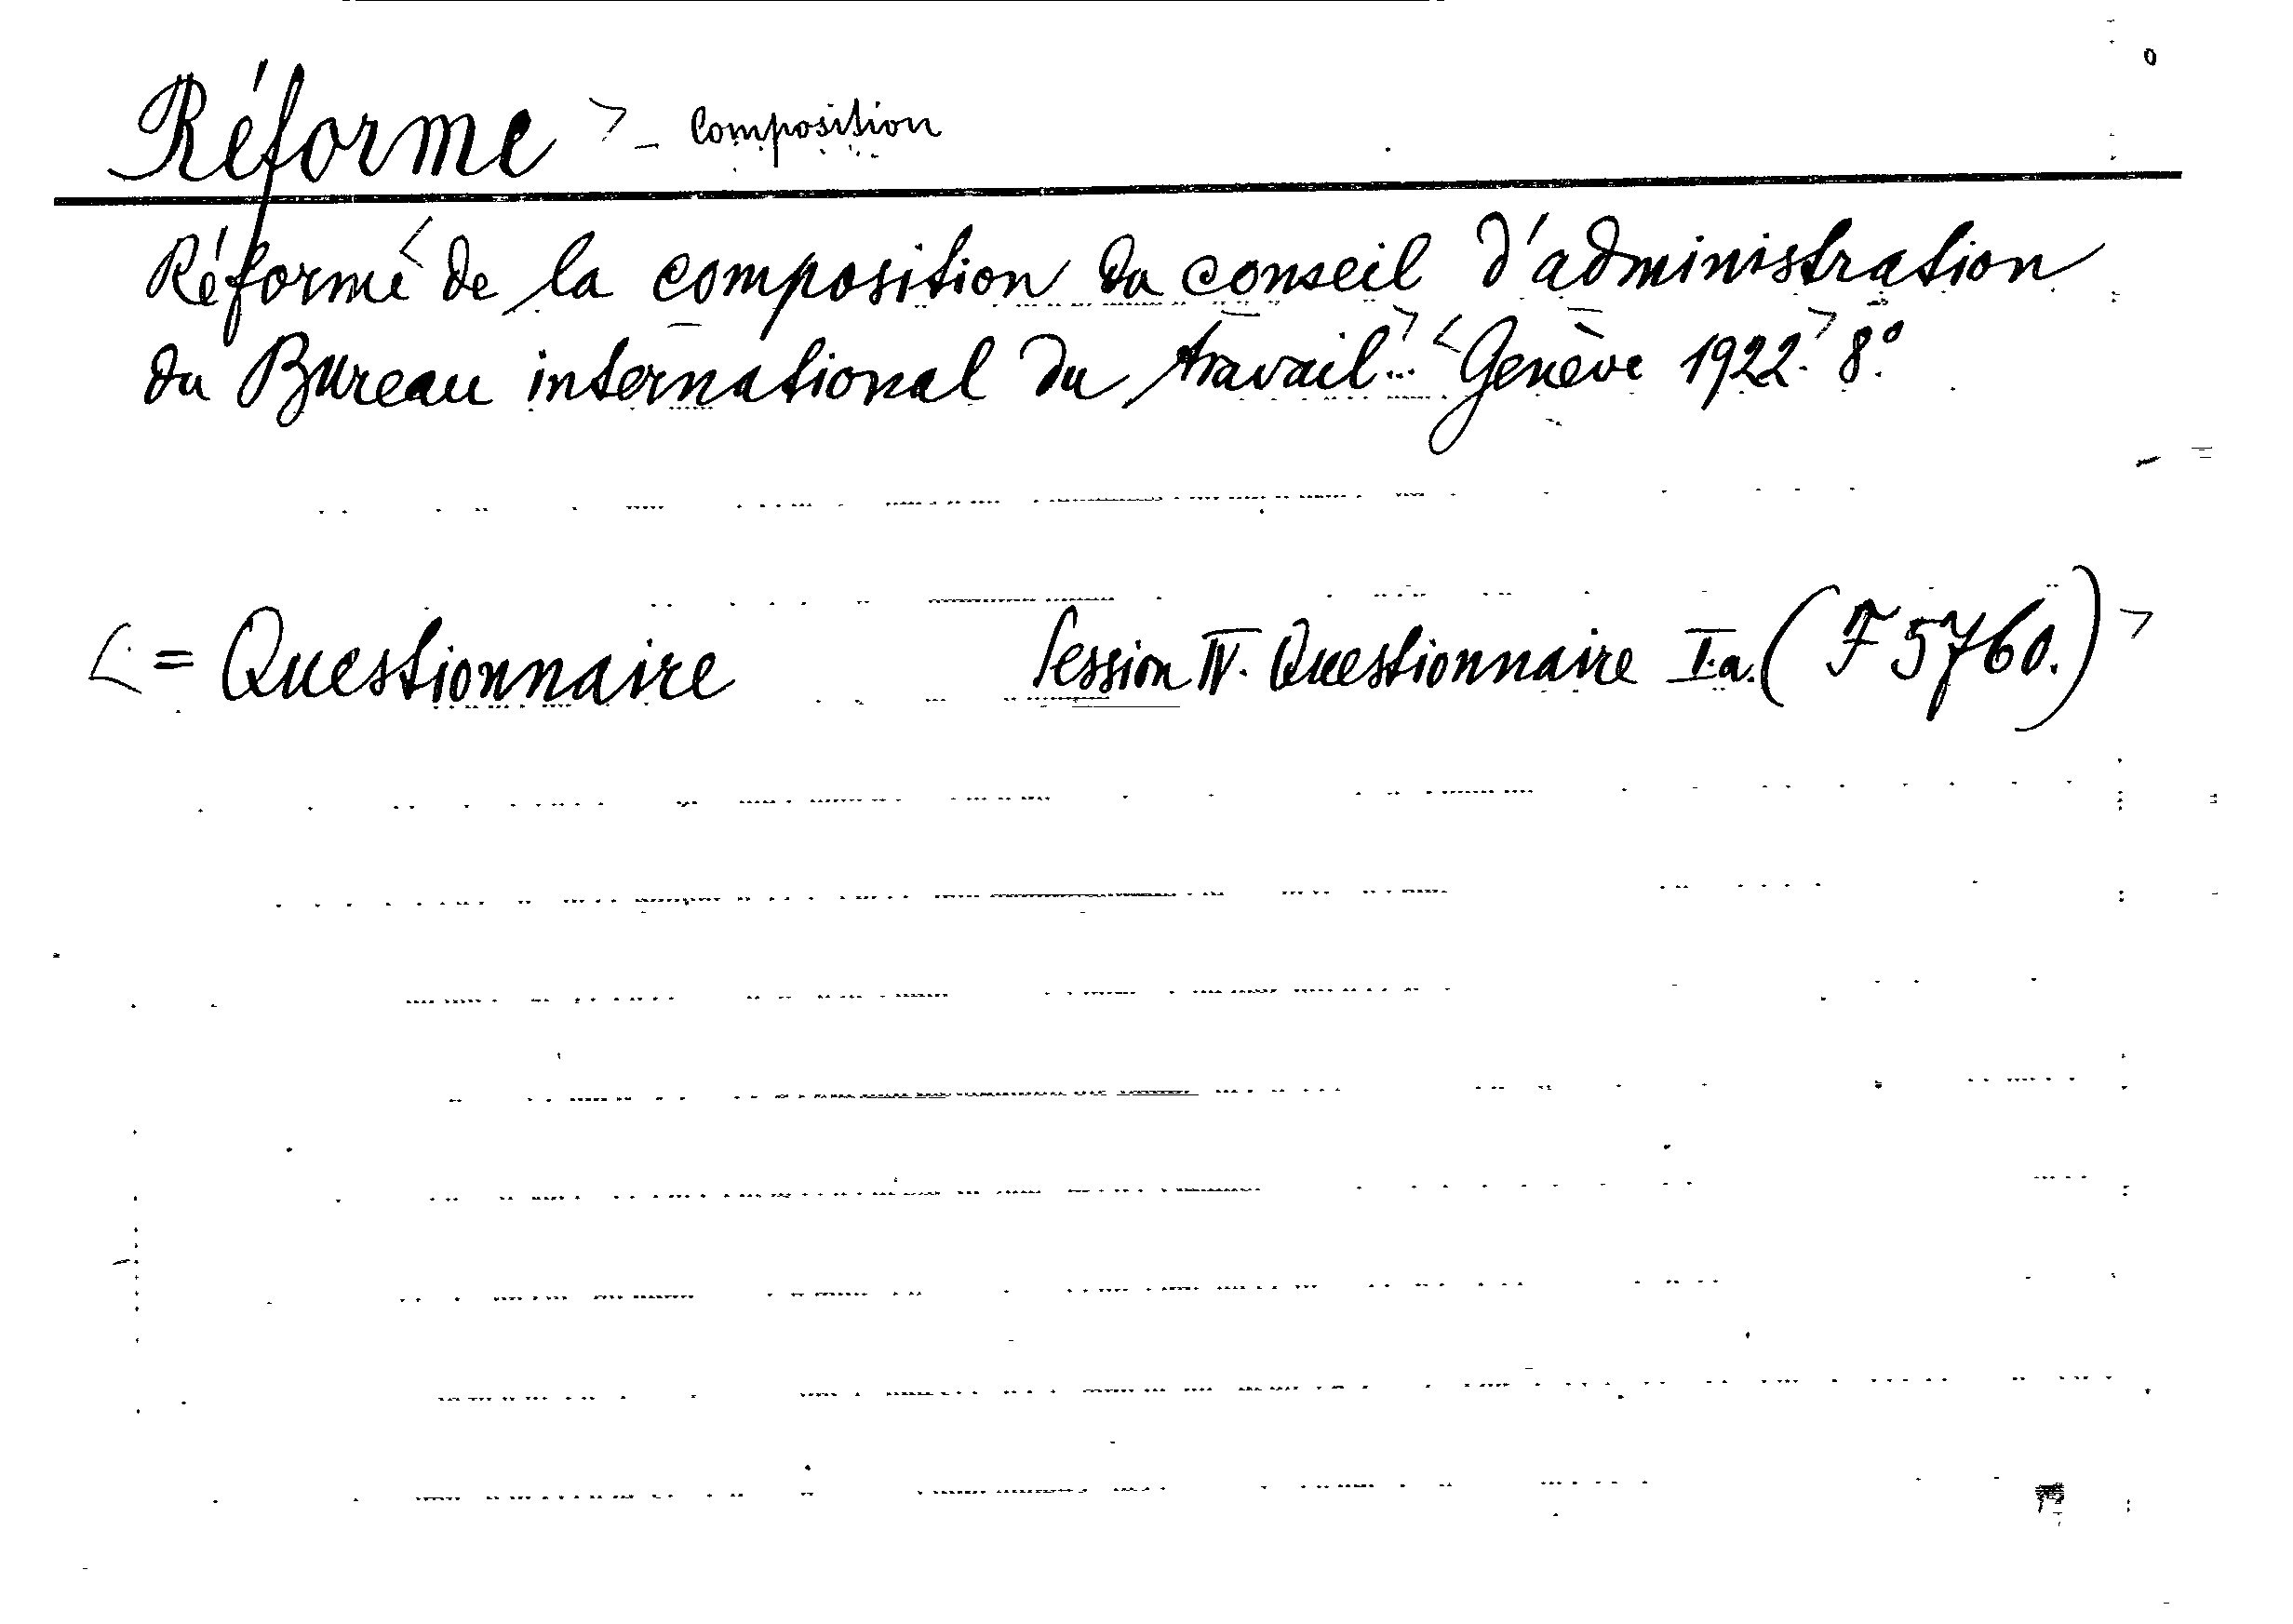 Réforme > - Composition
Réforme < de la composition du conseil d'administration
du Bureau international du travail.. > < Genève 1922. > 8°.
< = Questionnaire Session IV. Questionnaire I.a. (F 5760.) >